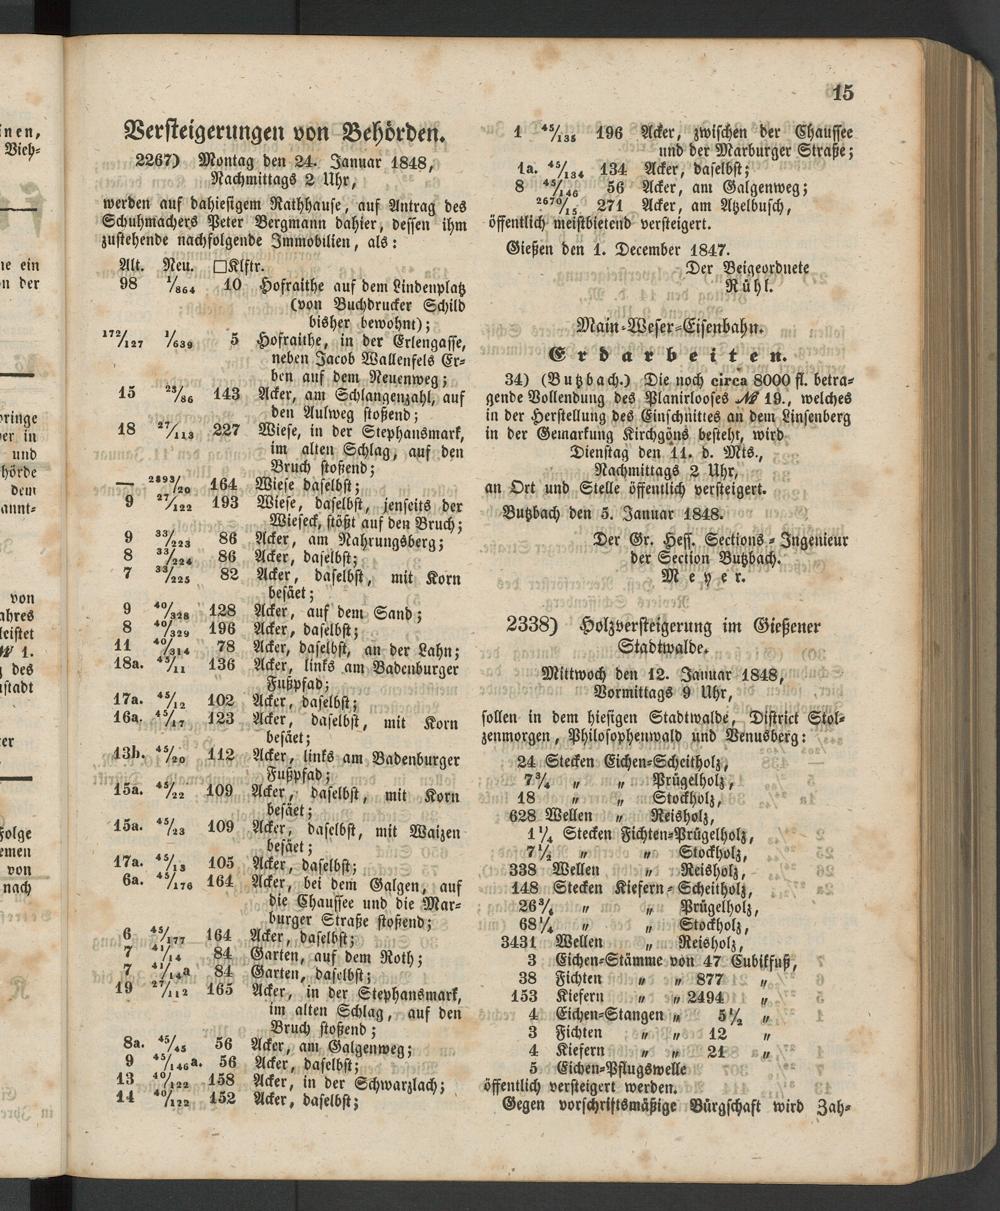 15
Versteigerungen von Behörden.
2267) Montag den 24. Januar 1848,
Nachmittags 2 Uhr,
werden auf dahiesigem Rathhause, auf Antrag des
Schuhmachers Peter Bergmann dahier, dessen ihm
zustehende nachfolgende Immobilien, als:
Alt. Neu. □Klftr.
98 1/864 10 Hofraithe auf dem Lindenplatz
(von Buchdrucker Schild
bisher bewohnt);
172/127 1/639 5 Hofraithe, in der Erlengasse,
neben Jacob Wallenfels Er-
ben auf dem Neuenweg;
15 23/86 143 Acker, am Schlangenzahl, auf
den Aulweg stoßend;
18 27/113 227 Wiese, in der Stephansmark,
im alten Schlag, auf den
Bruch stoßend;
— 2893/20 164 Wiese daselbst;
9 27/122 193 Wiese, daselbst, jenseits der
Wieseck, stößt auf den Bruch;
9 33/223 86 Acker, am Nahrungsberg;
8 33/224 86 Acker, daselbst;
7 33/225 82 Acker, daselbst, mit Korn
besäet;
9 40/328 128 Acker, auf dem Sand;
8 40/329 196 Acker, daselbst;
11 40/314 78 Acker, daselbst, an der Lahn;
18a. 45/11 136 Acker, links am Badenburger
Fußpfad;
17a. 45/12 102 Acker, daselbst;
16a. 45/17 123 Acker, daselbst, mit Korn
besäet;
13b. 45/20 112 Acker, links am Badenburger
Fußpfad;
15a. 45/22 109 Acker, daselbst, mit Korn
besäet;
15a. 45/23 109 Acker, daselbst, mit Waizen
besäet;
17a. 45/13 105 Acker, daselbst;
6a. 45/176 164 Acker, bei dem Galgen, auf
die Chaussee und die Mar-
burger Straße stoßend;
6 45/177 164 Acker, daselbst;
7 41/14 84 Garten, auf dem Roth;
7 41/14a 84 Garten, daselbst;
19 27/112 165 Acker, in der Stephansmark,
im alten Schlag, auf den
Bruch stoßend;
8a. 45/45 56 Acker, am Galgenweg;
9 45/146a. 56 Acker, daselbst;
13 40/122 158 Acker, in der Schwarzlach;
14 40/122 152 Acker, daselbst;
1 45/135 196 Acker, zwischen der Chaussee
und der Marburger Straße;
1a. 45/134 134 Acker, daselbst;
8 45/146 56 Acker, am Galgenweg;
2670/15 271 Acker, am Atzelbusch,
öffentlich meistbietend versteigert.
Gießen den 1. December 1847.
Der Beigeordnete
Rühl.
Main-Weser-Eisenbahn.
Erdarbeiten.
34) (Butzbach.) Die noch circa 8000 fl. betra-
gende Vollendung des Planirlooses № 19., welches
in der Herstellung des Einschnittes an dem Linsenberg
in der Gemarkung Kirchgöns besteht, wird
Dienstag den 11. d. Mts.,
Nachmittags 2 Uhr,
an Ort und Stelle öffentlich versteigert.
Butzbach den 5. Januar 1848.
Der Gr. Hess. Sections-Ingenieur
der Section Butzbach.
Meyer.
2338) Holzversteigerung im Gießener
Stadtwalde.
Mittwoch den 12. Januar 1848,
Vormittags 9 Uhr,
sollen in dem hiesigen Stadtwalde, District Stol-
zenmorgen, Philosophenwald und Venusberg:
24 Stecken Eichen-Scheitholz,
7 3/4 „ „ Prügelholz,
18 „ „ Stockholz,
628 Wellen „ Reisholz,
1 1/4 Stecken Fichten-Prügelholz,
7 1/2 „ „ Stockholz,
338 Wellen „ Reisholz,
148 Stecken Kiefern-Scheitholz,
26 3/4 „ „ Prügelholz,
68 1/4 „ „ Stockholz,
3431 Wellen „ Reisholz,
3 Eichen-Stämme von 47 Cubikfuß,
38 Fichten „ „ 877 „
153 Kiefern „ „ 2494 „
4 Eichen-Stangen „ 5 1/2 „
3 Fichten „ „ 12 „
4 Kiefern „ „ 21 „
5 Eichen-Pflugswelle
öffentlich versteigert werden.
Gegen vorschriftsmäßige Bürgschaft wird Zah-